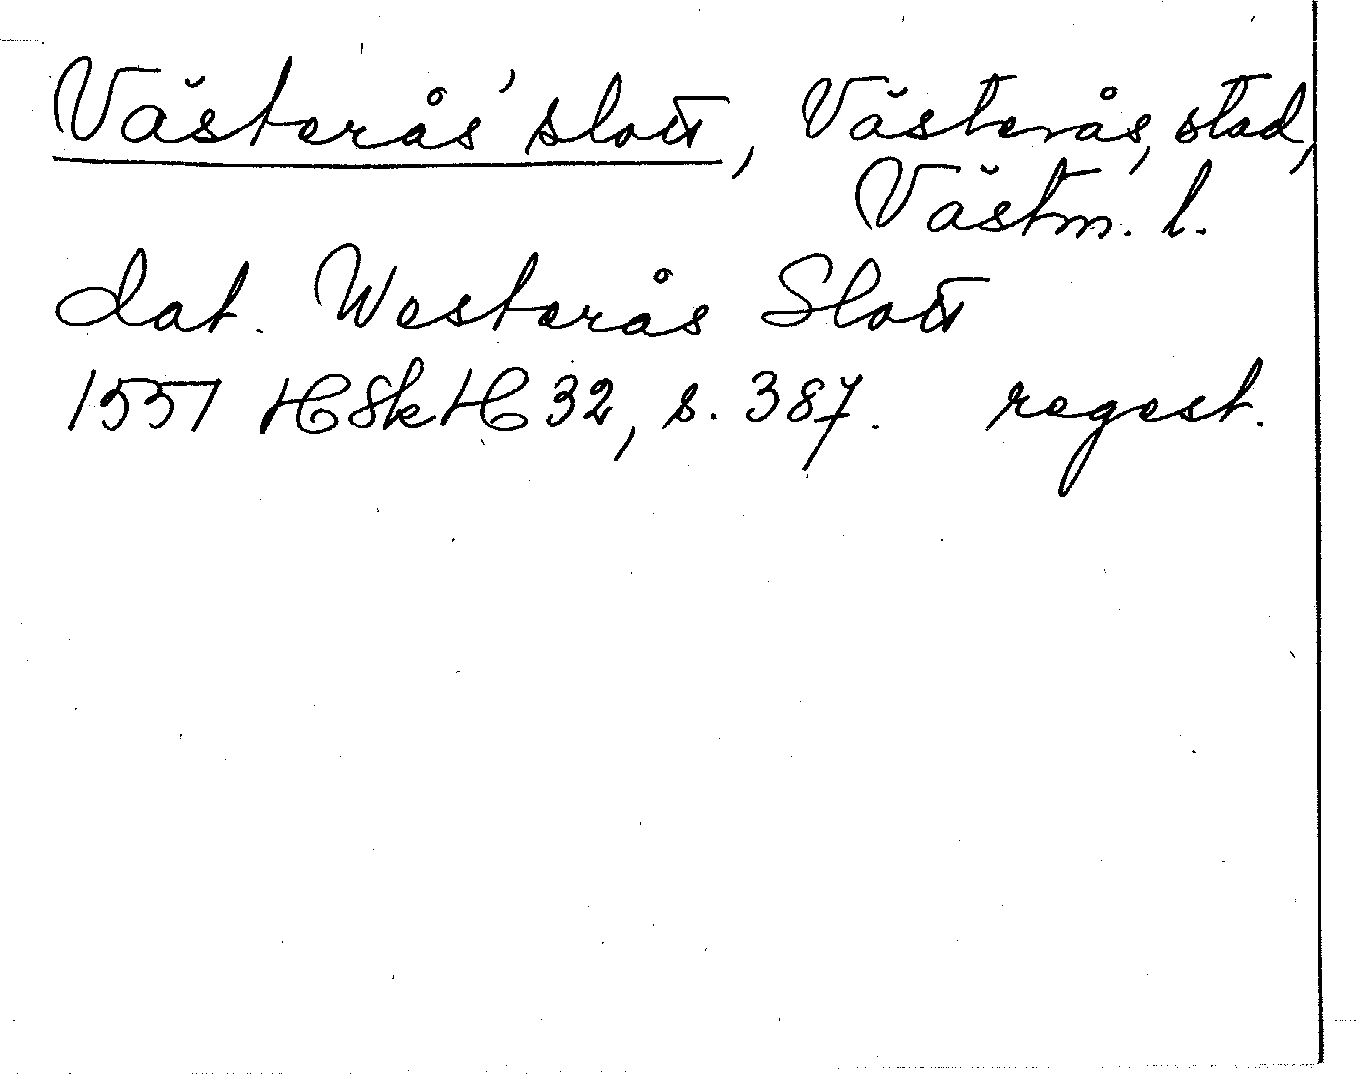 Västerås' slott, Västerås, stad,
Västm. l.
dat. Westerås Slott
1557 HSkH 32, s. 387. regest.